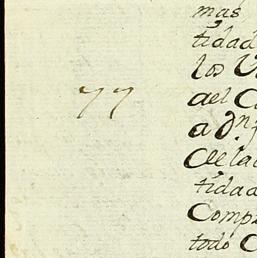 mas
tidad
los V
77
del C
a Dn
Dela
tidad
Comp
todo C